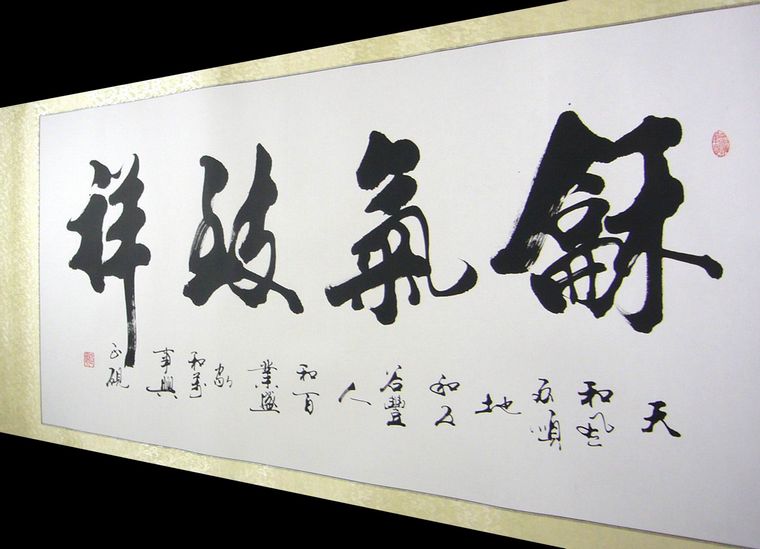 龢氣致祥
天和風雨順地和五谷豐人和百業盛家和萬事興